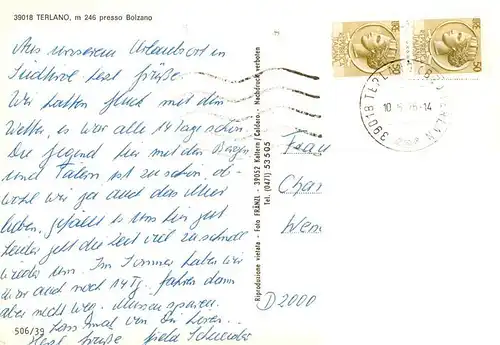 39018 TERLANO, m 246 presso Bolzano
Aus unserem Urlaubsort in
Südtirol herzl. Grüße.
Wir hatten Glück mit dem
Wetter, es war alle 14 Tage schön.
Die Gegend hier mit den Bergen
und Tälern ist zu schön, ob-
wohl wir ja auch das Meer
lieben, gefällt es uns hir gut
Leider geht die Zeit viel zu schnell
wieder um. Im Sommer haben wir
zwar auch noch 14 Tg. fahren dann
aber nicht weg. Müssen sparen.
Lass mal von Dir hören.
Herzl. Grüße
506/39
Riproduzione vietata - Foto FRÄNZL - 39052 Kaltern / Caldaro. - Nachdruck verboten
Tel. (0471) 53505
50
50
39018 TERL
10. 76-14
Frau
Char
Wern
D 2000